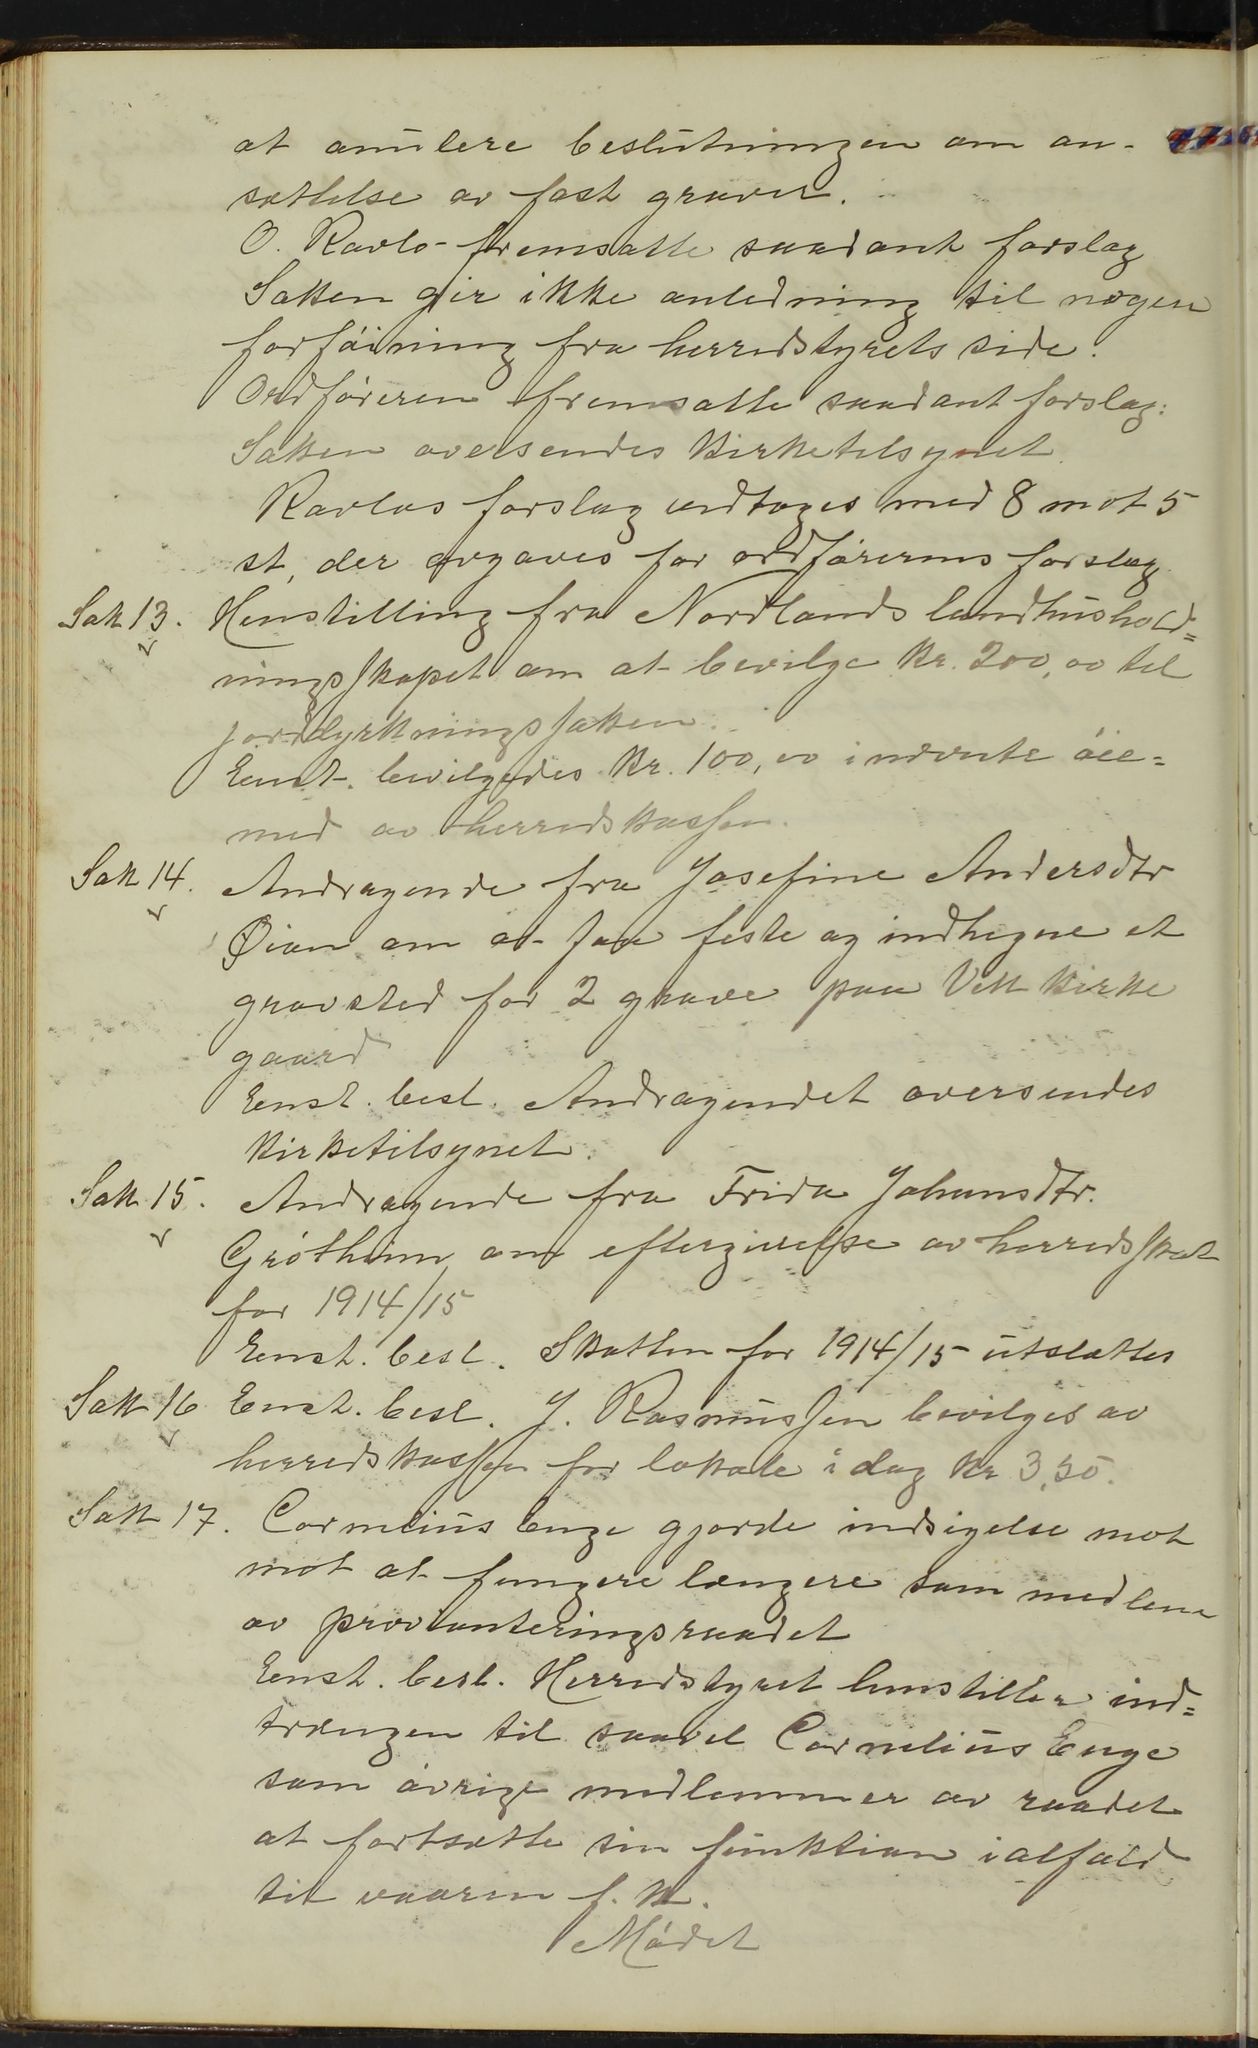 at anulere beslutningen om an-
sættelse av fast graver.
O. Ravlo fremsatte saadant forslag
Saken gir ikke anledning til nogen
forføining fra herredstyrets side.
Ordføreren fremsatte saadant forslag:
Saken oversendes kirketilsynet
Ravlos forslag vedtoges med 8 mot 5
st, der avgaves for ordførerens forslag
Sak 13. Henstilling fra Nordlands landhushold=
ningsskapet om at bevilge kr. 200,00 til
jorddyrkningssaken.
Enst. bevilgedes kr. 100,00 i nævnte øie=
med av herredskassen.
Sak 14. Andragende fra Josefine Andersdtr
Øian om at faa feste og indhegne et
gravsted for 2 grave paa Vik kirke
gaard
Enst. besl. Andragendet oversendes
kirketilsynet.
Sak 15. Andragende fra Frida Johansdtr.
Grøtheim om eftergivelse av herredsskat
for 1914/15
Enst. besl. Skatten for 1914/15 utslættes
Sak 16 Enst. besl. J. Rasmussen bevilges av
herredskassen for lokale i dag kr 3,50.
Sak 17. Cornelius Enge gjorde indsigelse mot
mot at fungere længere som medlem
av provianteringsraadet
Enst. besl. Herredstyret henstiller ind=
trængen til saavel Cornelius Enge
som øvrige medlemmer av raadet
at fortsætte sin funktion ialfald
til vaaren f. k.
Mødet